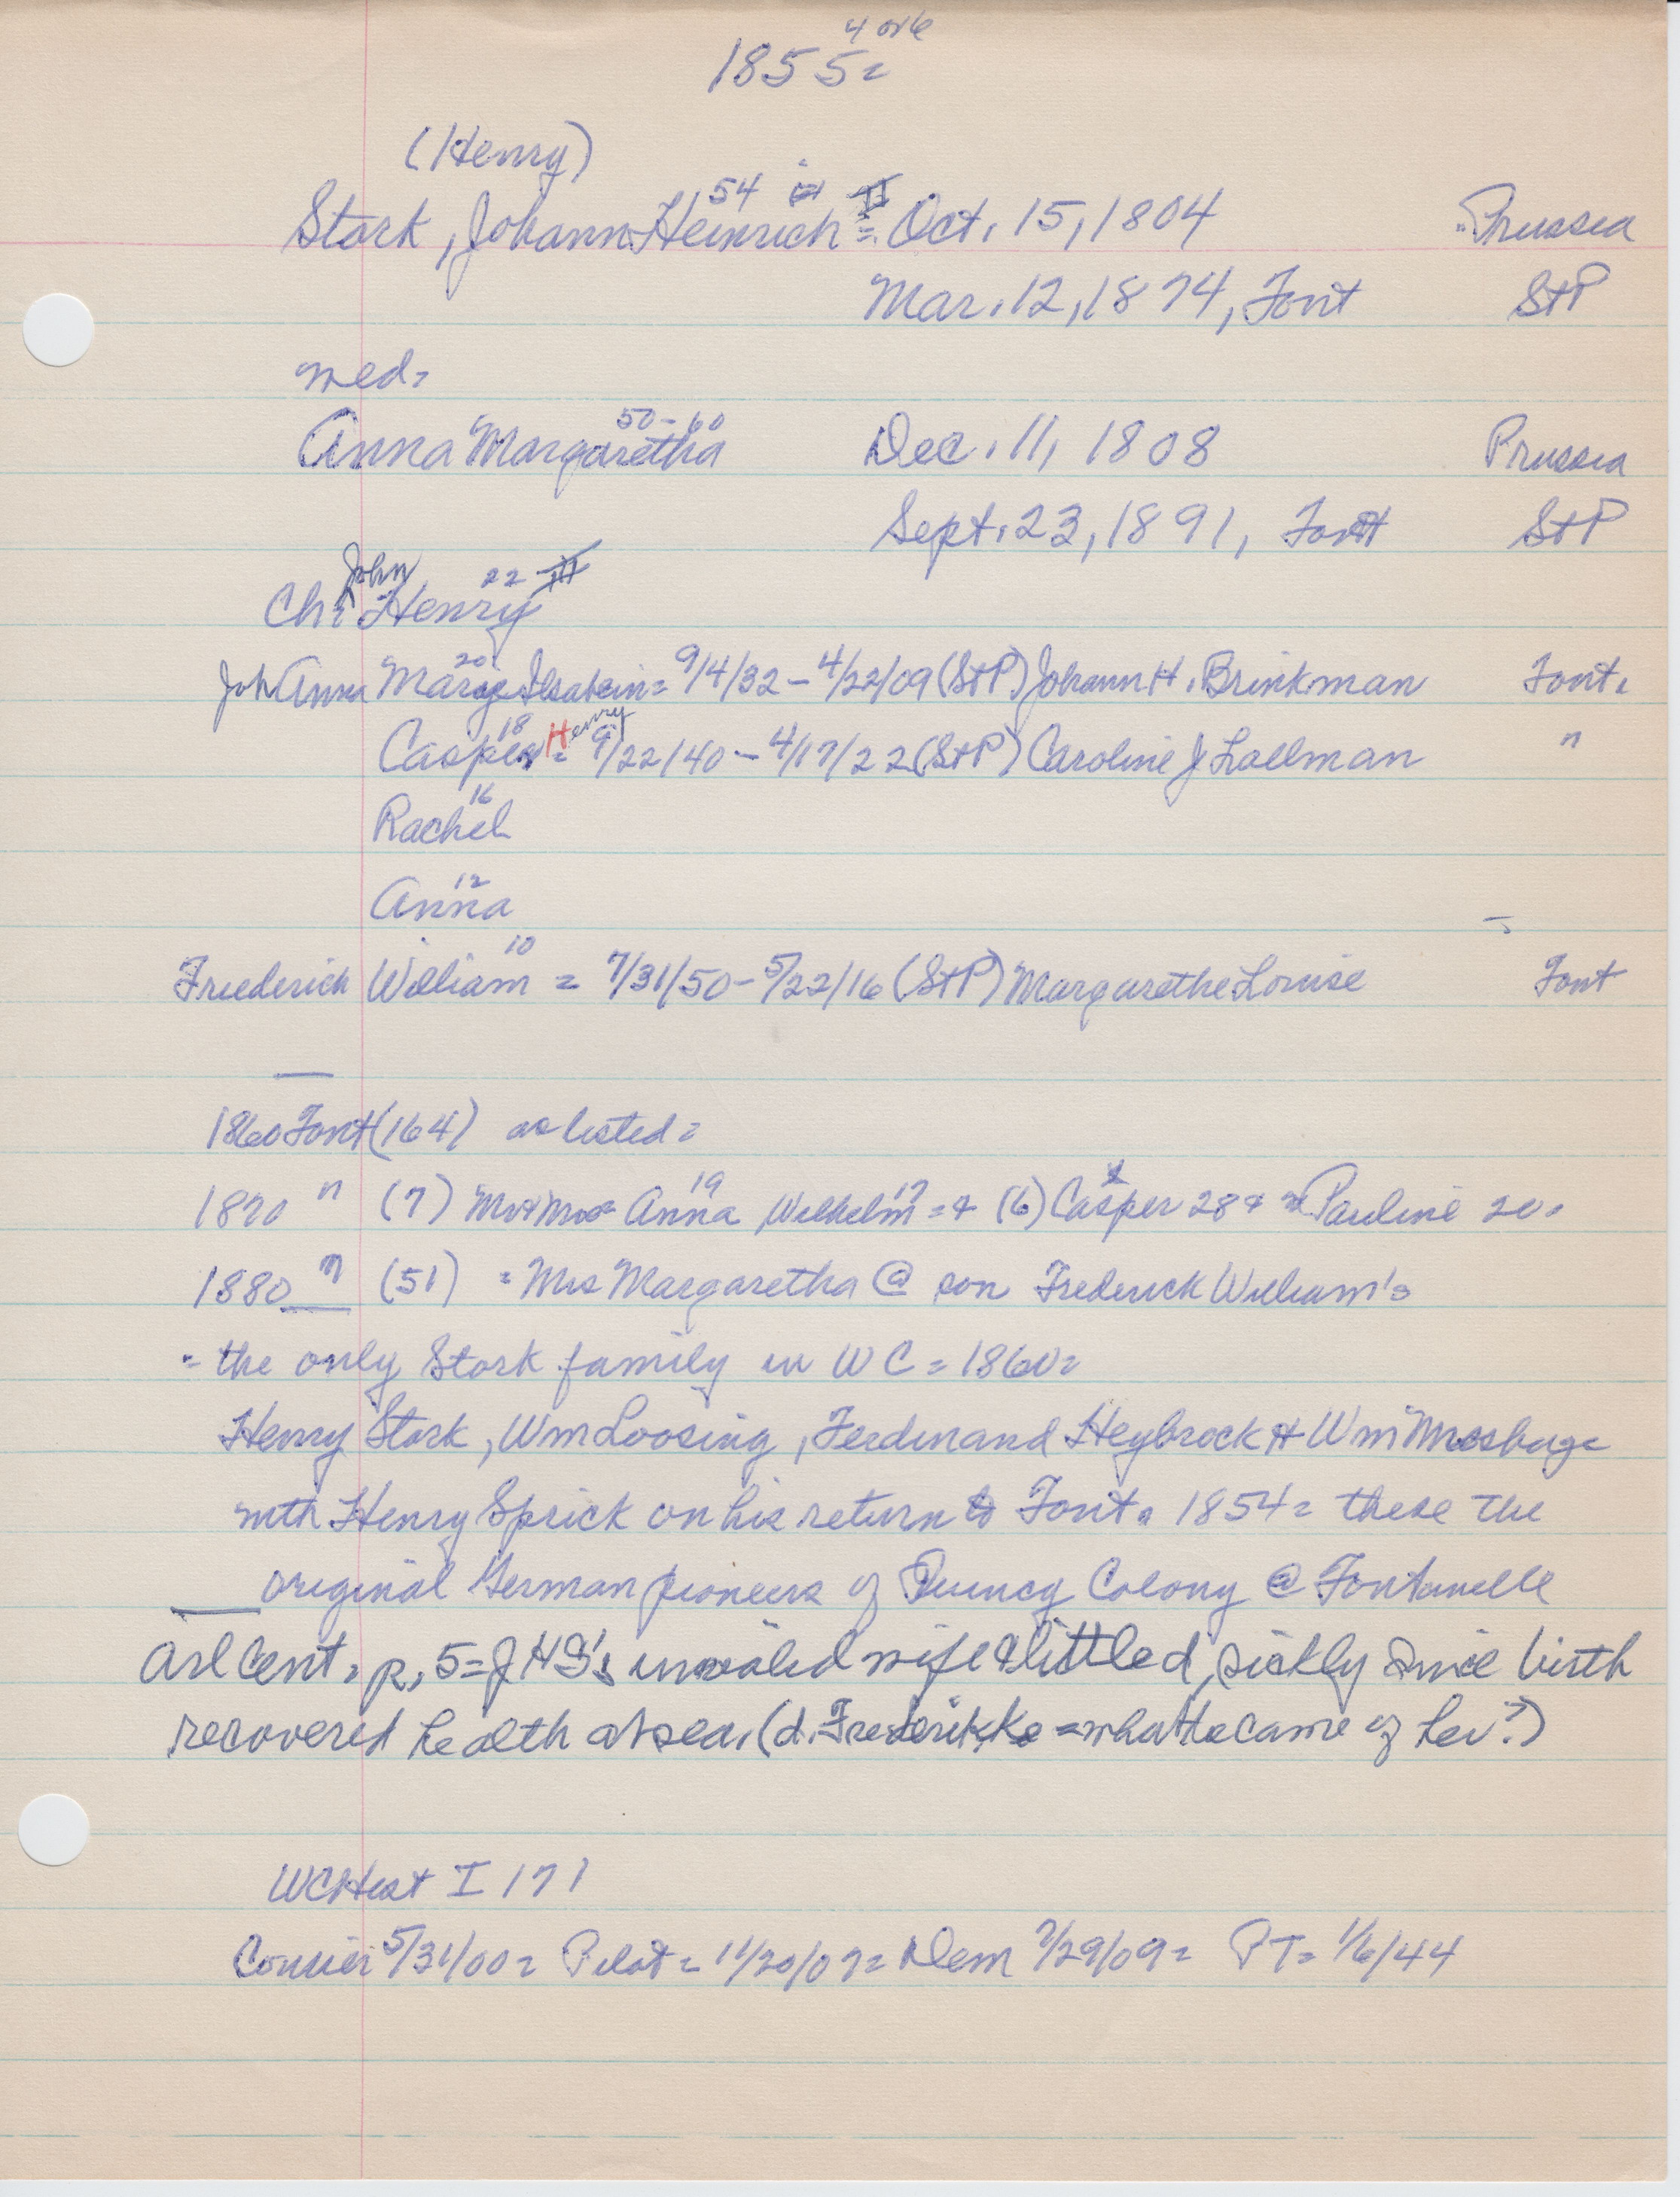 4 or 6
1855=
(Henry)
54
Stork, Johann Heinrich = Oct. 15, 1804 Prussia
Mar. 12, 1874, Font StP
med=
50-60
Anna Margaretha Dec. 11, 1808 Prussia
Sept. 23, 1891, Font StP
John 22 III
Ch: Henry
20
Anna Marg Ilsabein = 9/4/32 - 4/22/09 (StP) Johann H. Brinkman Font.
18 Henry
Casper = 9/22/40 - 4/17/22 (StP) Caroline J Lallman "
16
Rachel
12
Anna
10
Frederick William = 7/31/50 - 5/22/16 (StP) Margarethe Louise Font
1860 Font (164) as listed =
19 17
1870 " (7) Mr + Mrs = Anna Wilhelm = + (6) Casper 28 + Pauline 20.
1880 " (51) = Mrs Margaretha @ son Frederick William's
= the only Stork family in WC = 1860 =
Henry Stork, Wm Loosing, Ferdinand Heybrock + Wm
with Henry Sprick on his return to Font. 1854 = these the
original German pioneers of Quincy Colony @ Fontanelle
Arl Cent. p. 5 = JHS's invalid wife & little d, sickly since birth
recovered health at sea. (d. Frederikke = what became of her?)
WCHist I 171
Courier 5/31/00 = Pilot = 11/20/07 = Dem 7/29/09 = PT = 1/6/44